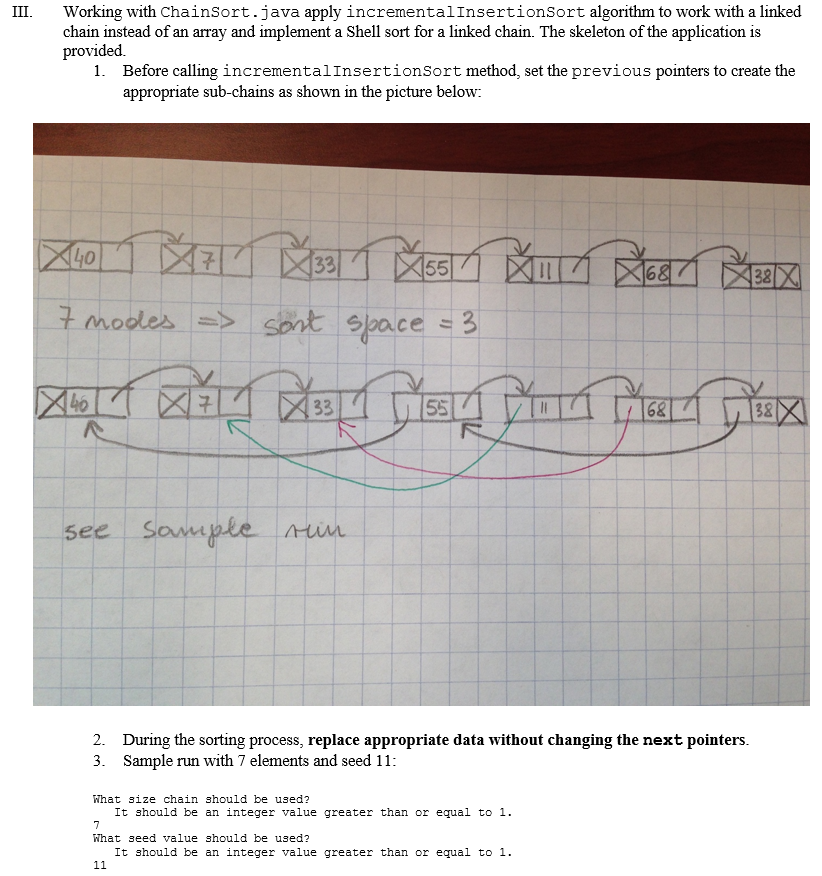 III. Working with ChainSort.java apply incrementalInsertionSort algorithm to work with a linked
chain instead of an array and implement a Shell sort for a linked chain. The skeleton of the application is
provided.
1. Before calling incrementalInsertionSort method, set the previous pointers to create the
appropriate sub-chains as shown in the picture below:
40 7 33 55 11 68 38
7 nodes => sort space = 3
40 7 33 55 11 68 38
see sample run
2. During the sorting process, replace appropriate data without changing the next pointers.
3. Sample run with 7 elements and seed 11:
What size chain should be used?
It should be an integer value greater than or equal to 1.
7
What seed value should be used?
It should be an integer value greater than or equal to 1.
11